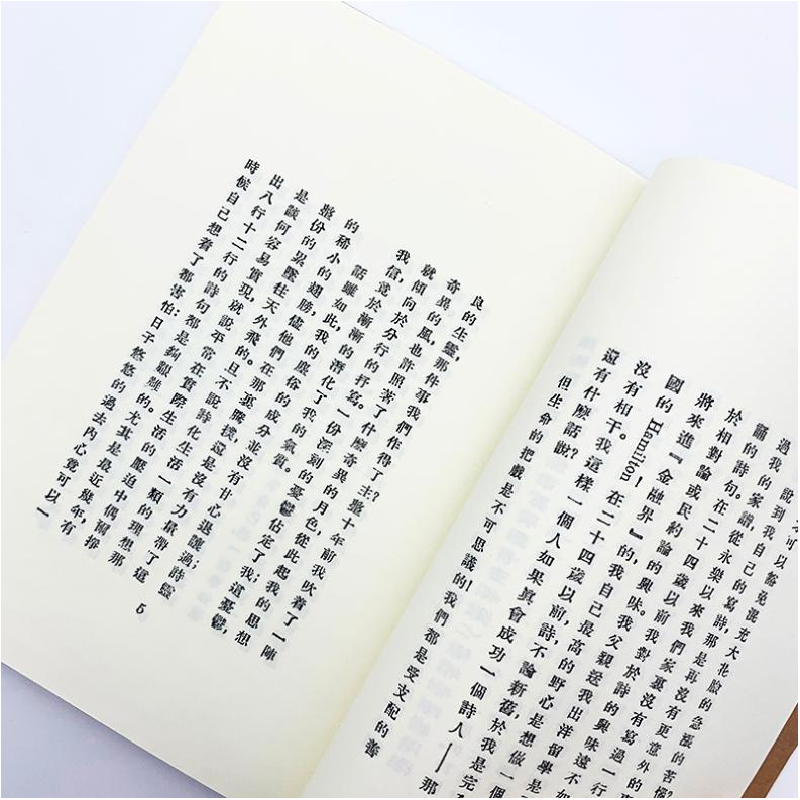 可以豁免混充大花臉的急漲的苦惱？
說到我自己的寫詩，那是再沒有更意外的
過我的家譜，從永樂以來我們家裏沒有寫過一行
誦的詩句。在二十四歲以前我對於詩的興味遠不如
於相對論或民約論的興味。我父親送我出洋留學是
將來進『金融界』的，我自己最高的野心是想做一個
國的 Hamilton！在二十四歲以前，詩，不論新舊，於我是完
沒有相干。我這樣一個人如果眞會成功一個詩人——那
還有什麽話說？
但生命的把戲是不可思議的！我們都是受支配的善
良的生靈，那件事我們作得了主？整十年前我吹着了一陣
奇異的風，也許照著了什麽奇異的月色，從此起我的思想
就傾向於分行的抒寫。一份深刻的憂鬱佔定了我；這憂鬱，
我信，竟於漸漸的潛化了我的氣質。
話雖如此，我的塵俗的成分並沒有甘心退讓過；詩靈
的稀小的翅膀，儘他們在那裏騰撲，還是沒有力量帶了這
整份的累墜往天外飛的。且不說詩化生活一類的理想那
是談何容易實現，就說平常在實際生活的壓迫中偶爾掙
出八行十二行的詩句都是夠艱難的。尤其是最近幾年，有
時候自己想着了都害怕：日子悠悠的過去內心竟可以一
5